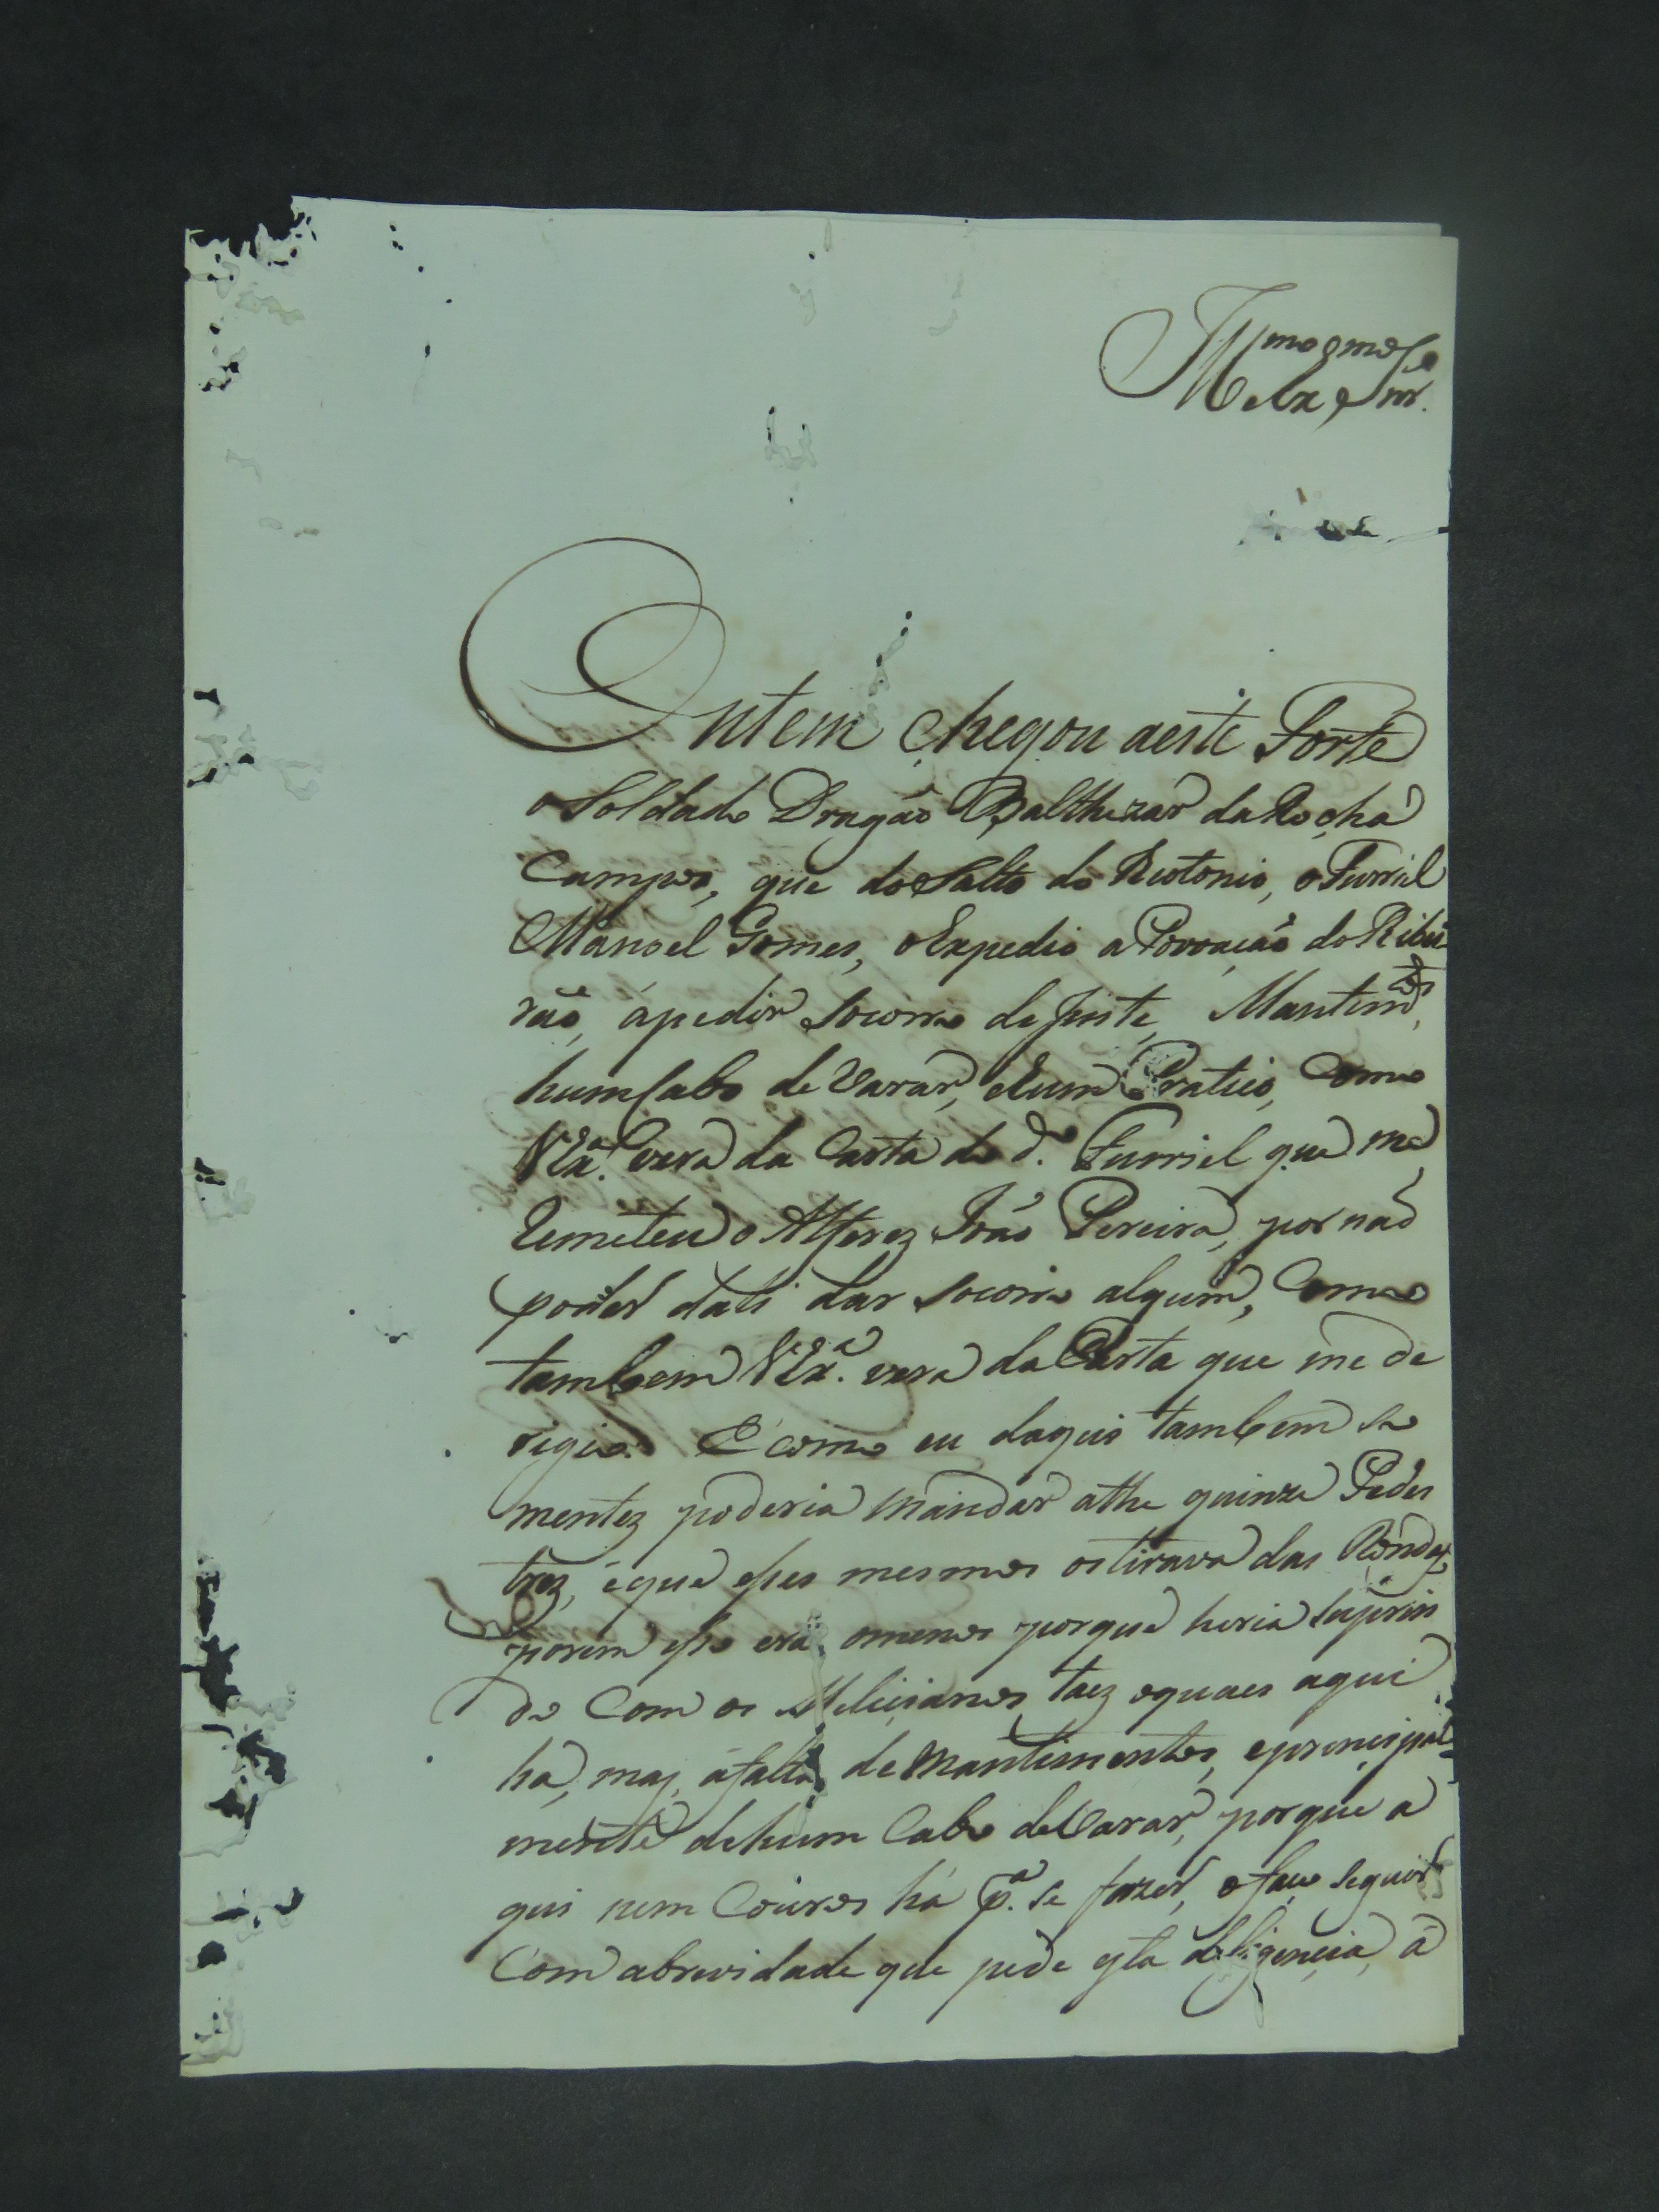 Ill.mo e Ex.mo Snr.
Ontem chegou aeste Forte
o Soldado Dragão Balthezar da Rocha
Campos, que do Salto do Teotonio, o Furriel
Manoel Gomes, o Expedio a Povoação do Ribei
rão, ápedir Socorro de Jente, Mantim.tos,
hum Cabo de Varar, ehum Pratico, Como
V Ex.ª verá da Carta do d.º Furriel que me
Remeteu o Alferez João Pereira, por não
poder dali dar Socorro algum, Como
tambem V Ex.ª vera da Carta que me de
rigio. E como eu daqui tambem so
mentez poderia mandar athe quinze Pedes
trez, eque esses mesmos ostirava das Rondaz,
porem isso era omenos porque hiria suprin
do Com os Meliçianos, taez equaes aqui
ha, maz, áfalta de Mantimentos, eprencipal
mente dehum Cabo deVarar, porque a
qui nem Couros há p.ª se fazer, o faço seguir
Com abrevidade que pede esta deligençia, á